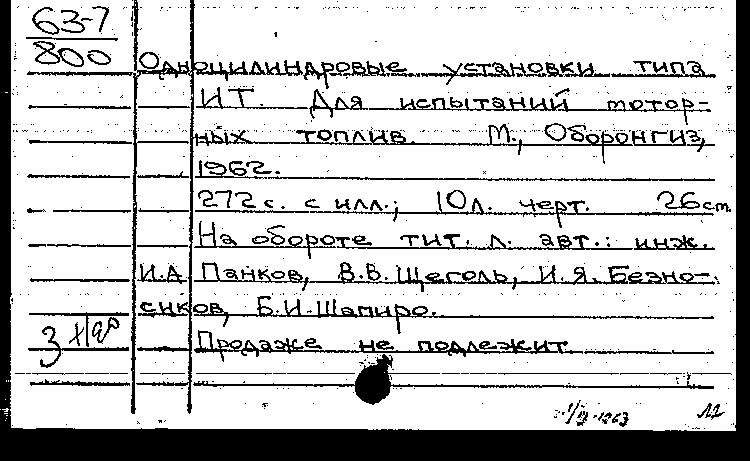 63-7
800
Одноцилиндровые установки типа
ИТ. Для испытаний мотор-
ных топлив. М., Оборонгиз,
1962.
272 с. с илл.; 10 л. черт. 26 см.
На обороте тит. л. авт.: инж.
И.А Панков, В.В. Щеголь, И.Я. Безно-
сиков, Б.И. Шапиро.
Продаже не подлежит
3